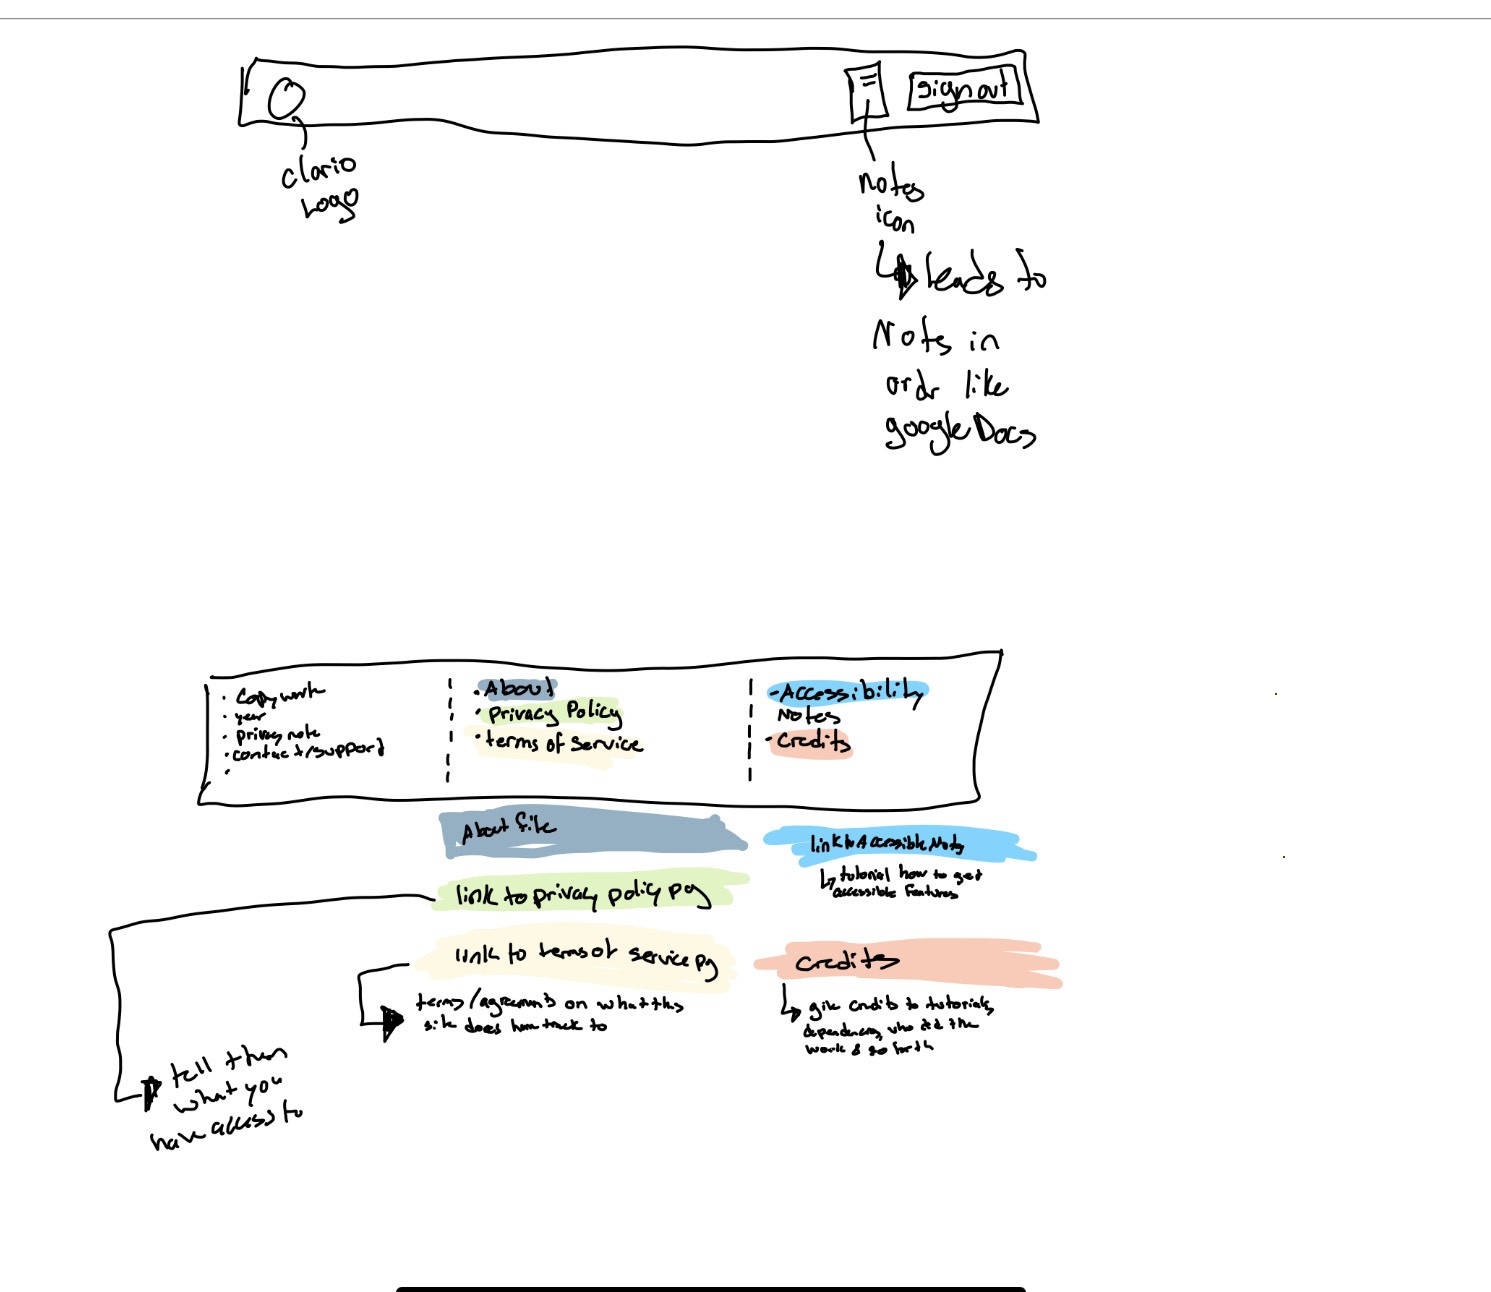 sign out
clario
Logo
notes
icon
leads to
Notes in
ordr like
google Docs
· Copywork
· year
· privacy note
· contact/support
·
· About
· Privacy Policy
· terms of service
- Accessibility
Notes
· Credits
About file
link to privacy policy pg
link to terms of service pg
terms/agreements on what this
site does
to
link to Accessible Notes
tutorial how to get
accessible features
Credits
give credits to tutorials,
who did the
work & so forth
tell them
what you
have access to